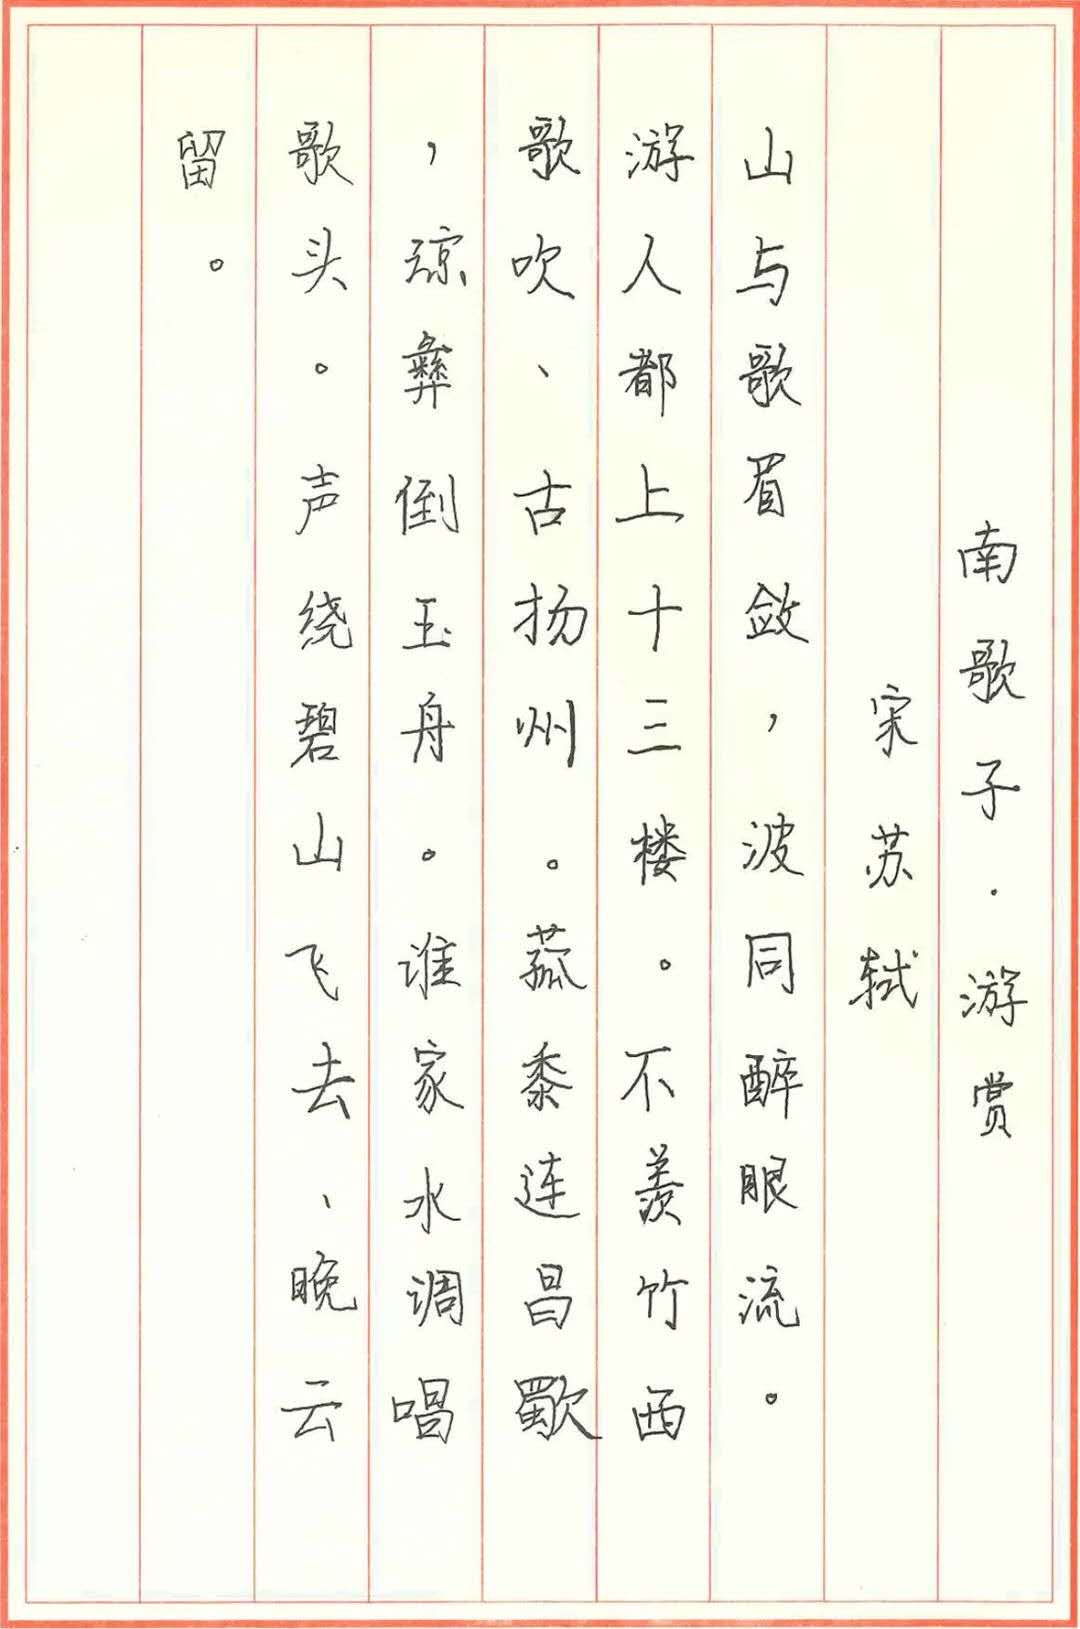 南歌子·游赏
宋苏轼
山与歌眉敛，波同醉眼流。
游人都上十三楼。不羡竹西
歌吹、古扬州。菰黍连昌歜
，琼彝倒玉舟。谁家水调唱
歌头。声绕碧山飞去、晚云
留。